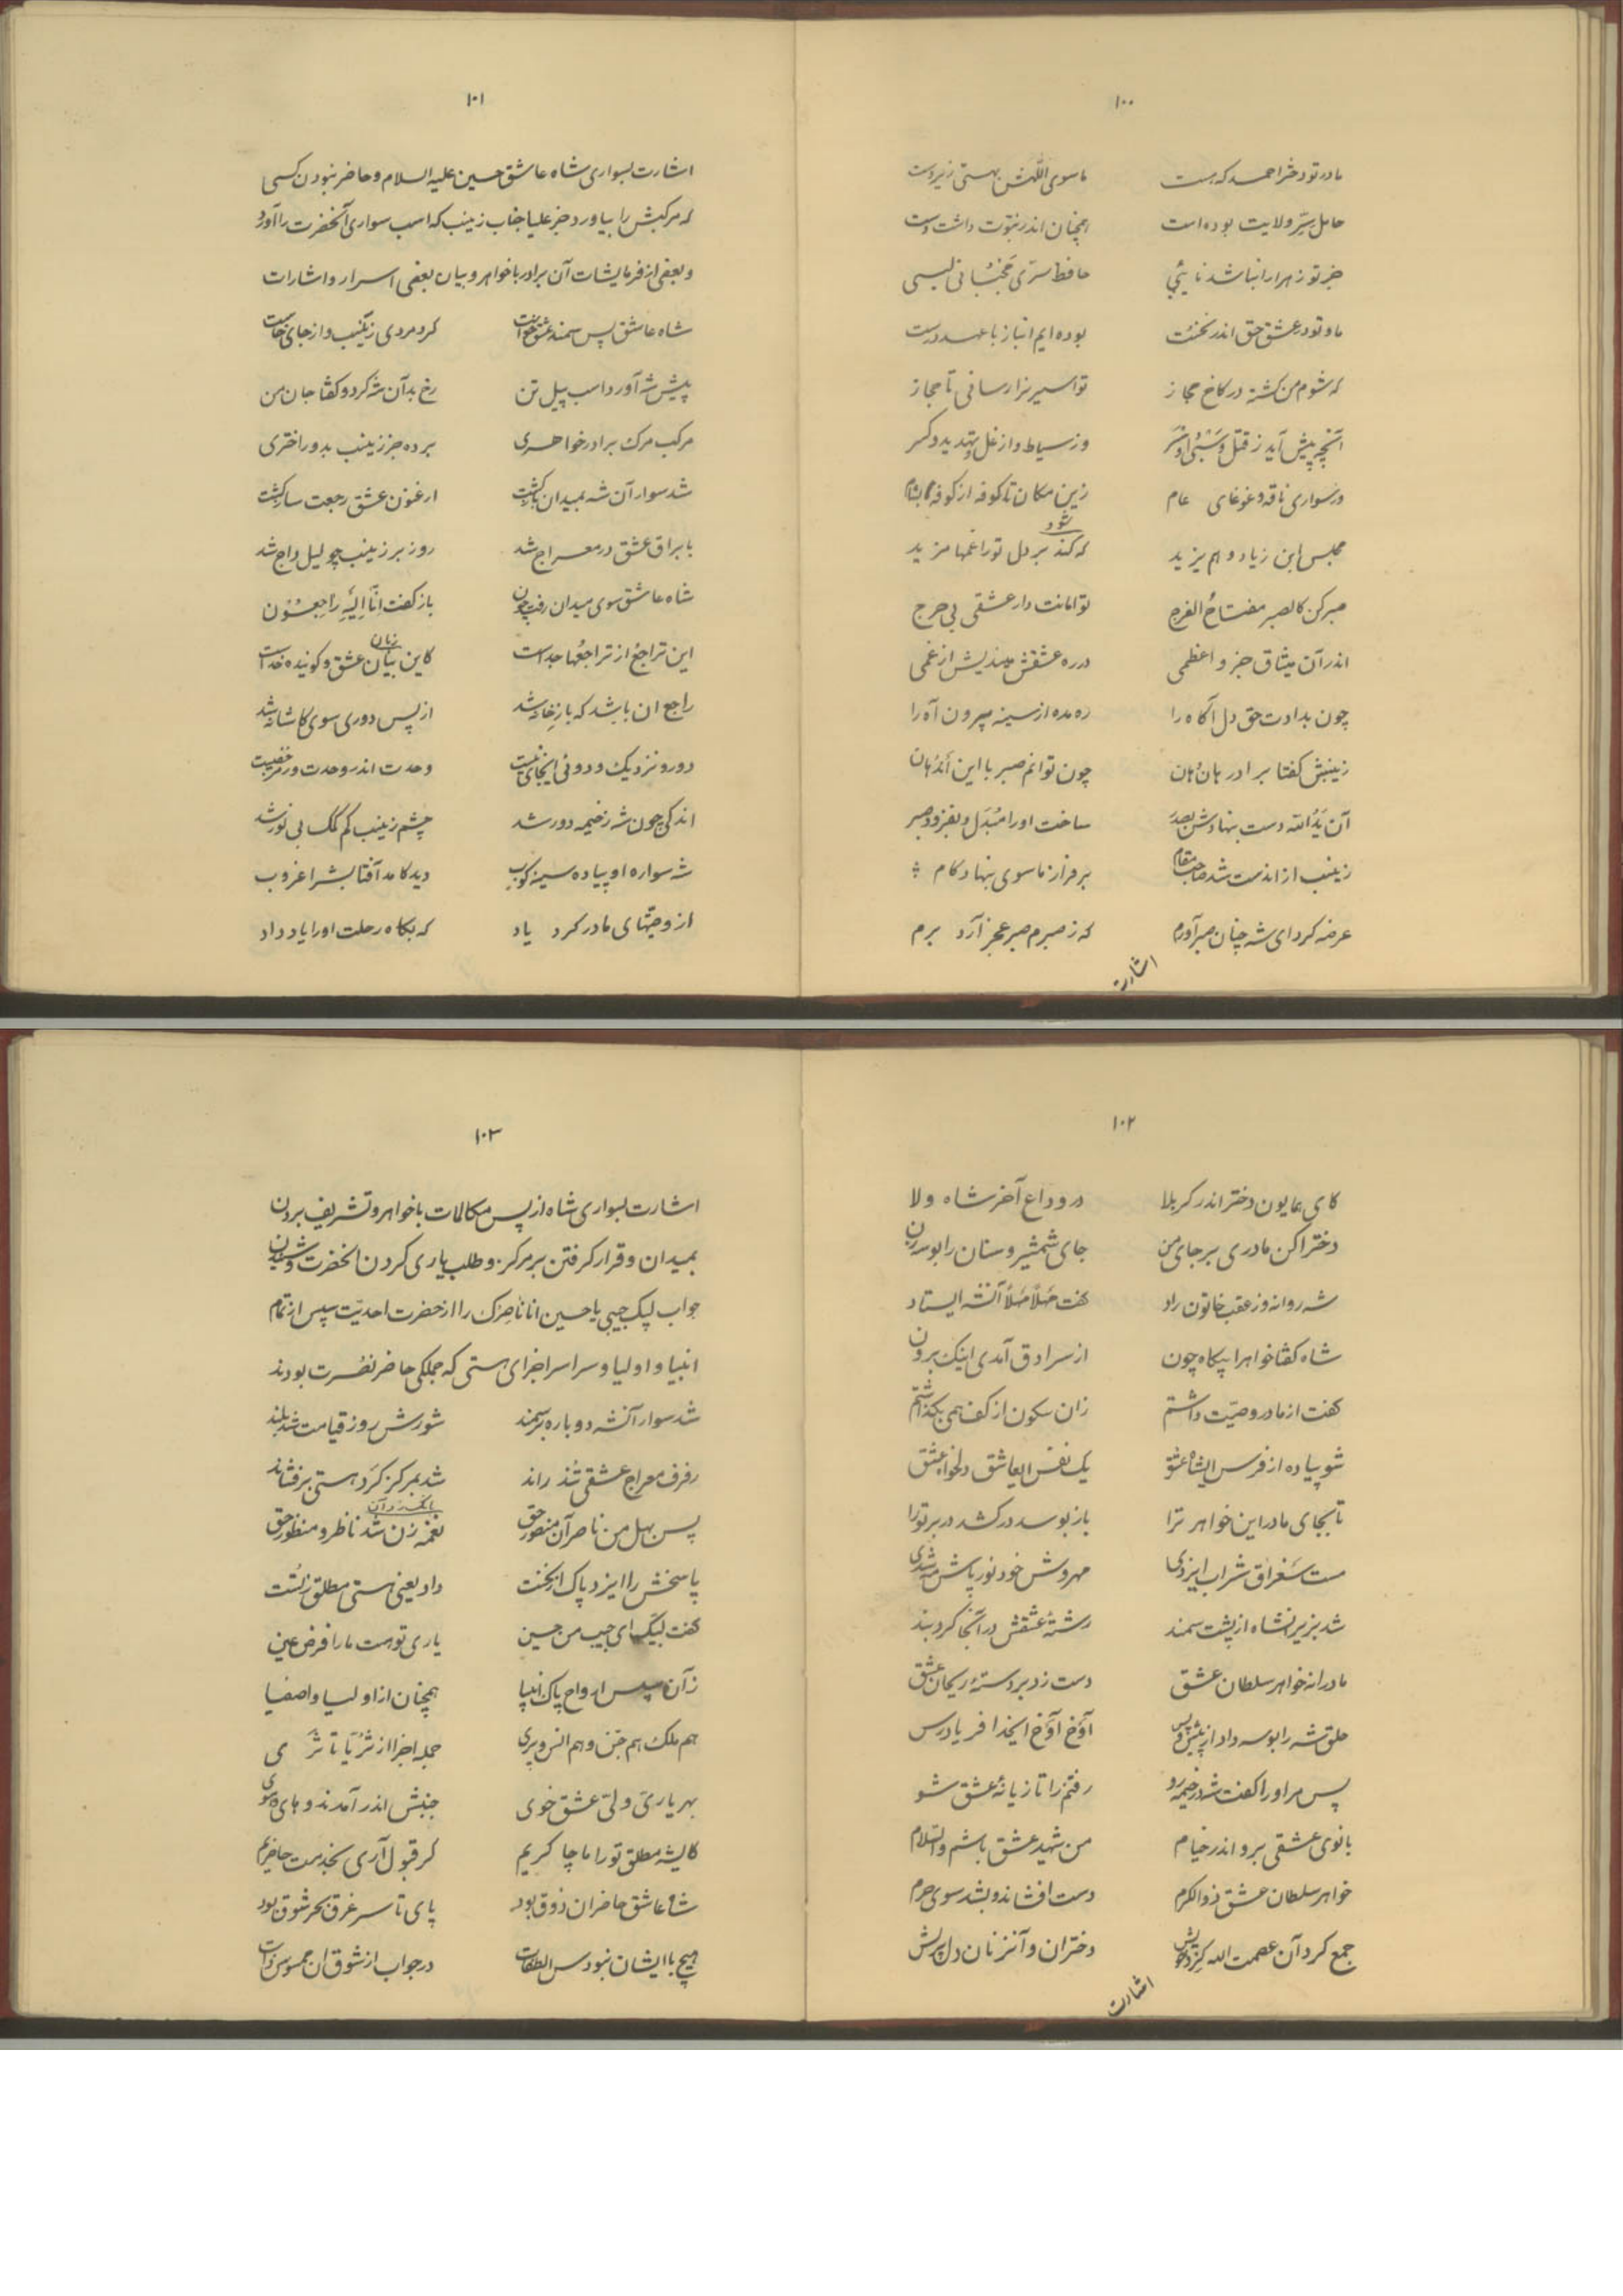 ۱۰۰
مادر تو دختر احمد که هست ماسوی اللهش بهستی زیر دست
حامل سر ولایت بوده است همچنان اندر نبوت داشت دست
جز تو زهرا را نباشد نائبی حافظ سری
ما و تو در عشق حق اندر نخست بوده ایم انباز با عهد درست
که شوم من کشته در کاخ مجاز تو اسیر نزار سانی تا حجاز
آنچه پیش آید ز قتل و وز سیاط و از غل و تهدید و کسر
در سواری ناقه و غوغای عام زین مکان تا کوفه از کوفه بشام
مجلس ابن زیاد و هم یزید که کند بر دل تو را غمها مزید
شود
صبر کن کالصبر مفتاح الفرج تو امانت دار عشقی بی حرج
اندر آن میثاق جزو اعظمی در ره عشقش میندیش از غمی
چون بدادت حق دل آگاه را ره مده از سینه بیرون آه را
زینبش گفتا برادر هان هان چون توانم صبر با این اندهان
آن یدالله دست بنهادش بصدر ساخت او را مبدل و بفزود صبر
زینب از آندست شد صاحب مقام بر فراز ماسوی بنهاد کام
عرضه کرد ای شه چنان صبر آورم که ز صبرم صبر عجز آرد برم
اشارت
۱۰۱
اشارت بسواری شاه عاشق حسین علیه السلام و حاضر نبودن کسی
که مرکبش را بیاورد جز علیا جناب زینب که اسب سواری آنحضرت را آورد
و بعضی از فرمایشات آن برادر با خواهر و بیان بعضی اسرار و اشارات
شاه عاشق پس سمند عشق خواست کرد مردی زینب و از جای خاست
پیش شه آورد اسب پیل تن رخ بدآن شه کرد و گفتا جان من
مرکب مرگ برادر خواهری برده جز زینب بدوراختری
شد سوار آن شه بمیدان بازگشت ارغنون عشق رجعت ساز گشت
با براق عشق در معراج شد روز بر زینب چو لیل داج شد
شاه عاشق سوی میدان رفت چون باز گفت انا الیه راجعون
این تراجع از تراجعها جداست کاین بیان عشق و گوینده خداست
زبان
راجع ان باشد که باز خانه شد از پس دوری سوی کاشانه شد
دور و نزدیک و دوئی اینجای نیست وحدت اندر وحدت و رمز خفیست
اندکی چون شه ز خیمه دور شد چشم زینب کم کمک بی نور شد
شه سواره او پیاده سینه کوب دید کامد آفتابش را غروب
از وصیتهای مادر کرد یاد که بگاه رحلت او را یاد داد
۱۰۲
کای همایون دختر اندر کربلا در وداع آخر شاه ولا
دخترا کن مادری بر جای من جای شمشیر و سنان را بوسه زن
شه روانه وز عقب خاتون راد گفت مهلا مهلا آنشه ایستاد
شاه گفتا خواهرا بیگاه چون از سرادق آمدی اینک برون
گفت از مادر وصیت داشتم زان سکون از کف همی بگذاشتم
شو پیاده از فرس ایشاه عشق یک نفس ایعاشق دلخواه عشق
تا بجای مادر این خواهر ترا باز بوسد در کشد در بر تو را
مست سغراق شراب ایزدی مهروش خود نور پاش مه شدی
شد بزیر انشاه از پشت سمند رشته عشقش در آنجا کرد بند
مادرانه خواهر سلطان عشق دست زد بر دسته ریحان عشق
حلق شه را بوسه داد از پیش و پس آوخ آوخ ایخدا فریاد رس
پس مر او را گفت شه در خیمه رو رفتنم را تازیانه عشق شو
بانوی عشقی برو اندر خیام من شهید عشق باشم والسلام
خواهر سلطان عشق ذوالکرم دست افشاند و بشد سوی حرم
جمع کرد آن عصمت الله دختران و آنزنان دل پریش
اشارت
۱۰۳
اشارت بسواری شاه از پس مکالمات با خواهر و تشریف بردن
بمیدان و قرار گرفتن بر مرکز و طلب یاری کردن انحضرت و شنیدن
جواب لبیک حبیبی یا حسین انا ناصرک را از حضرت احدیت سپس از تمام
انبیا و اولیا و سراسر اجزای هستی که جملگی حاضر نصرت بودند
شد سوار آنشه دوباره بر سمند شورش روز قیامت شد بلند
رفرف معراج عشقی تند راند شد بمرکز گرد هستی بر فشاند
پس بهل من ناصر آن منصور حق نغمه زن شد ناظر و منظور حق
پاسخش را ایزد پاک از نخست داد یعنی هستی مطلق
گفت لبیک ای حبیب من حسین یاری تو هست ما را فرض عین
زآن سپس ارواح پاک انبیا همچنان از اولیا و اصفیا
هم ملک هم جن و هم انس و پری جمله اجزا از ثریا تا ثری
بهر یاری ولی عشق خوی جنبش اندر آمدند و های هوی
کایشه مطلق تو را ما چاکریم گر قبول آری بخدمت حاضریم
شاه عاشق حاضران ذوق بود پای تا سر غرق بحر شوق بود
هیچ با ایشان نبودس التفات در جواب از شوق ان